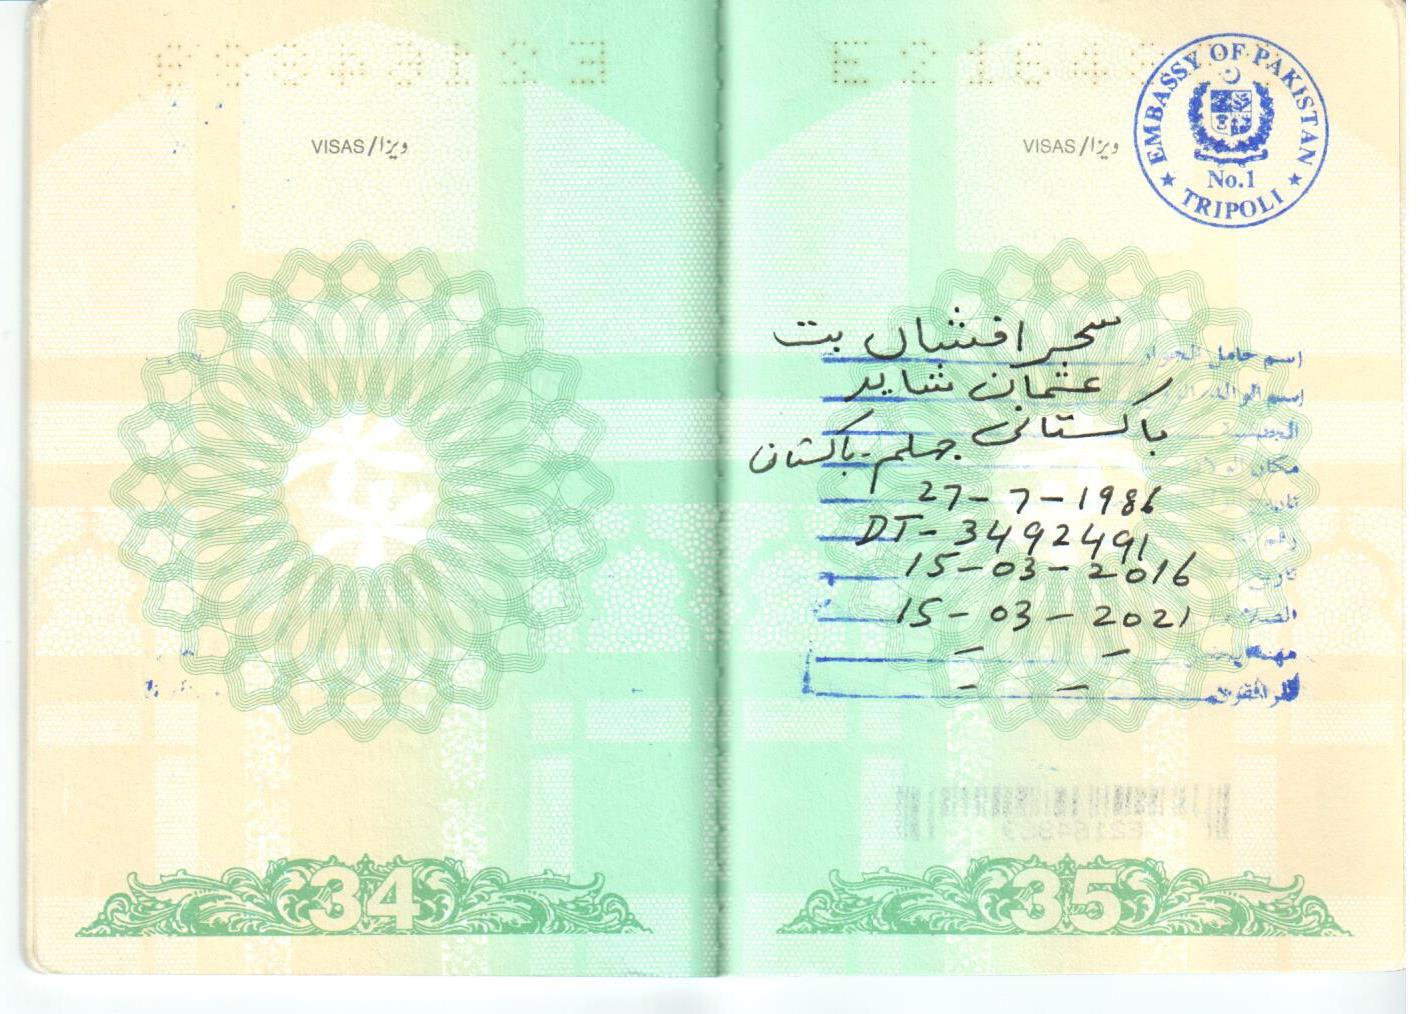 VISAS/ویزا
34
VISAS/ویزا
EMBASSY OF PAKISTAN
No.1
TRIPOLI
اسم حامل الجواز سحر افشاں بت
اسم الوالد عثمان شاہد
پاکستانی
مكان جہلم - پاکستان
27-7-1986
رقم DT-3492491
تاريخ 15-03-2016
15-03-2021
مهنة
35